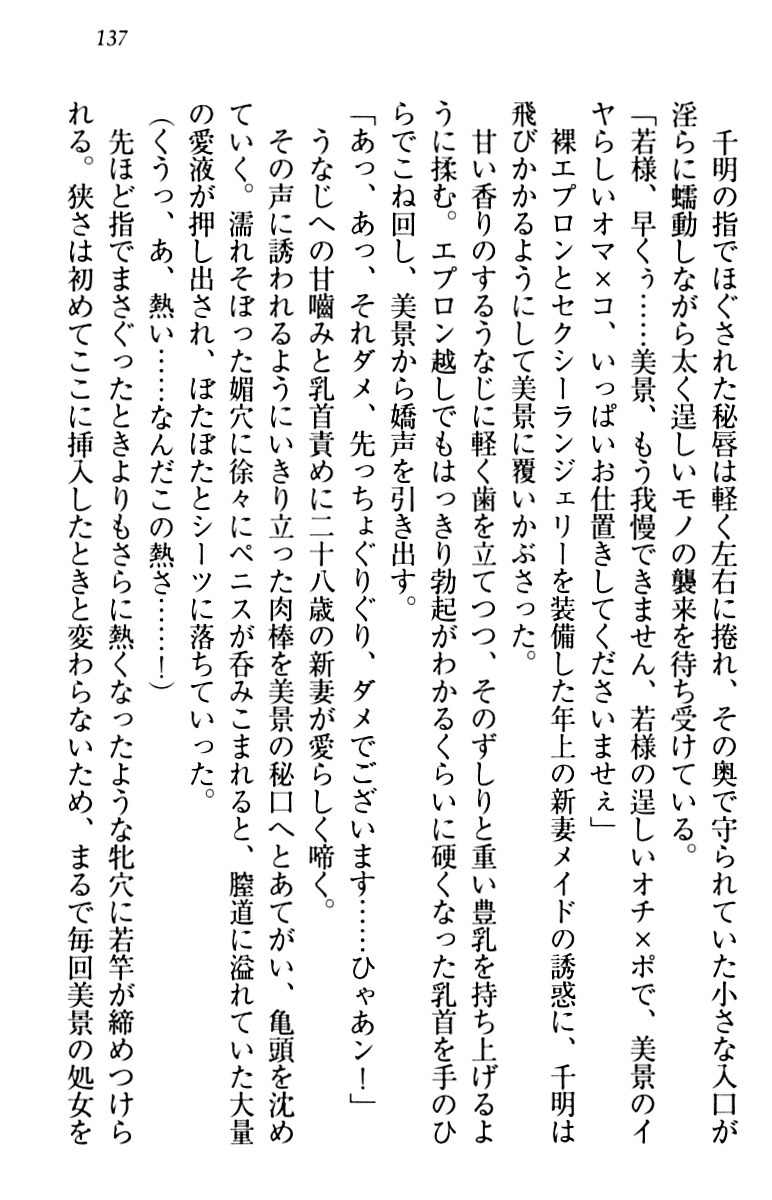 137
千明の指でほぐされた秘唇は軽く左右に捲れ、その奥で守られていた小さな入口が
淫らに蠕動しながら太く逞しいモノの襲来を待ち受けている。
「若様、早くぅ……美景、もう我慢できません、若様の逞しいオチ×ポで、美景のイ
ヤらしいオマ×コ、いっぱいお仕置きしてくださいませぇ」
裸エプロンとセクシーランジェリーを装備した年上の新妻メイドの誘惑に、千明は
飛びかかるようにして美景に覆いかぶさった。
甘い香りのするうなじに軽く歯を立てつつ、そのずしりと重い豊乳を持ち上げるよ
うに揉む。エプロン越しでもはっきり勃起がわかるくらいに硬くなった乳首を手のひ
らでこね回し、美景から嬌声を引き出す。
「あっ、あっ、それダメ、先っちょぐりぐり、ダメでございます……ひゃあン！」
うなじへの甘嚙みと乳首責めに二十八歳の新妻が愛らしく啼く。
その声に誘われるようにいきり立った肉棒を美景の秘口へとあてがい、亀頭を沈め
ていく。濡れそぼった媚穴に徐々にペニスが呑みこまれると、膣道に溢れていた大量
の愛液が押し出され、ぼたぼたとシーツに落ちていった。
（くうっ、あ、熱い……なんだこの熱さ……！）
先ほど指でまさぐったときよりもさらに熱くなったような牝穴に若竿が締めつけら
れる。狭さは初めてここに挿入したときと変わらないため、まるで毎回美景の処女を